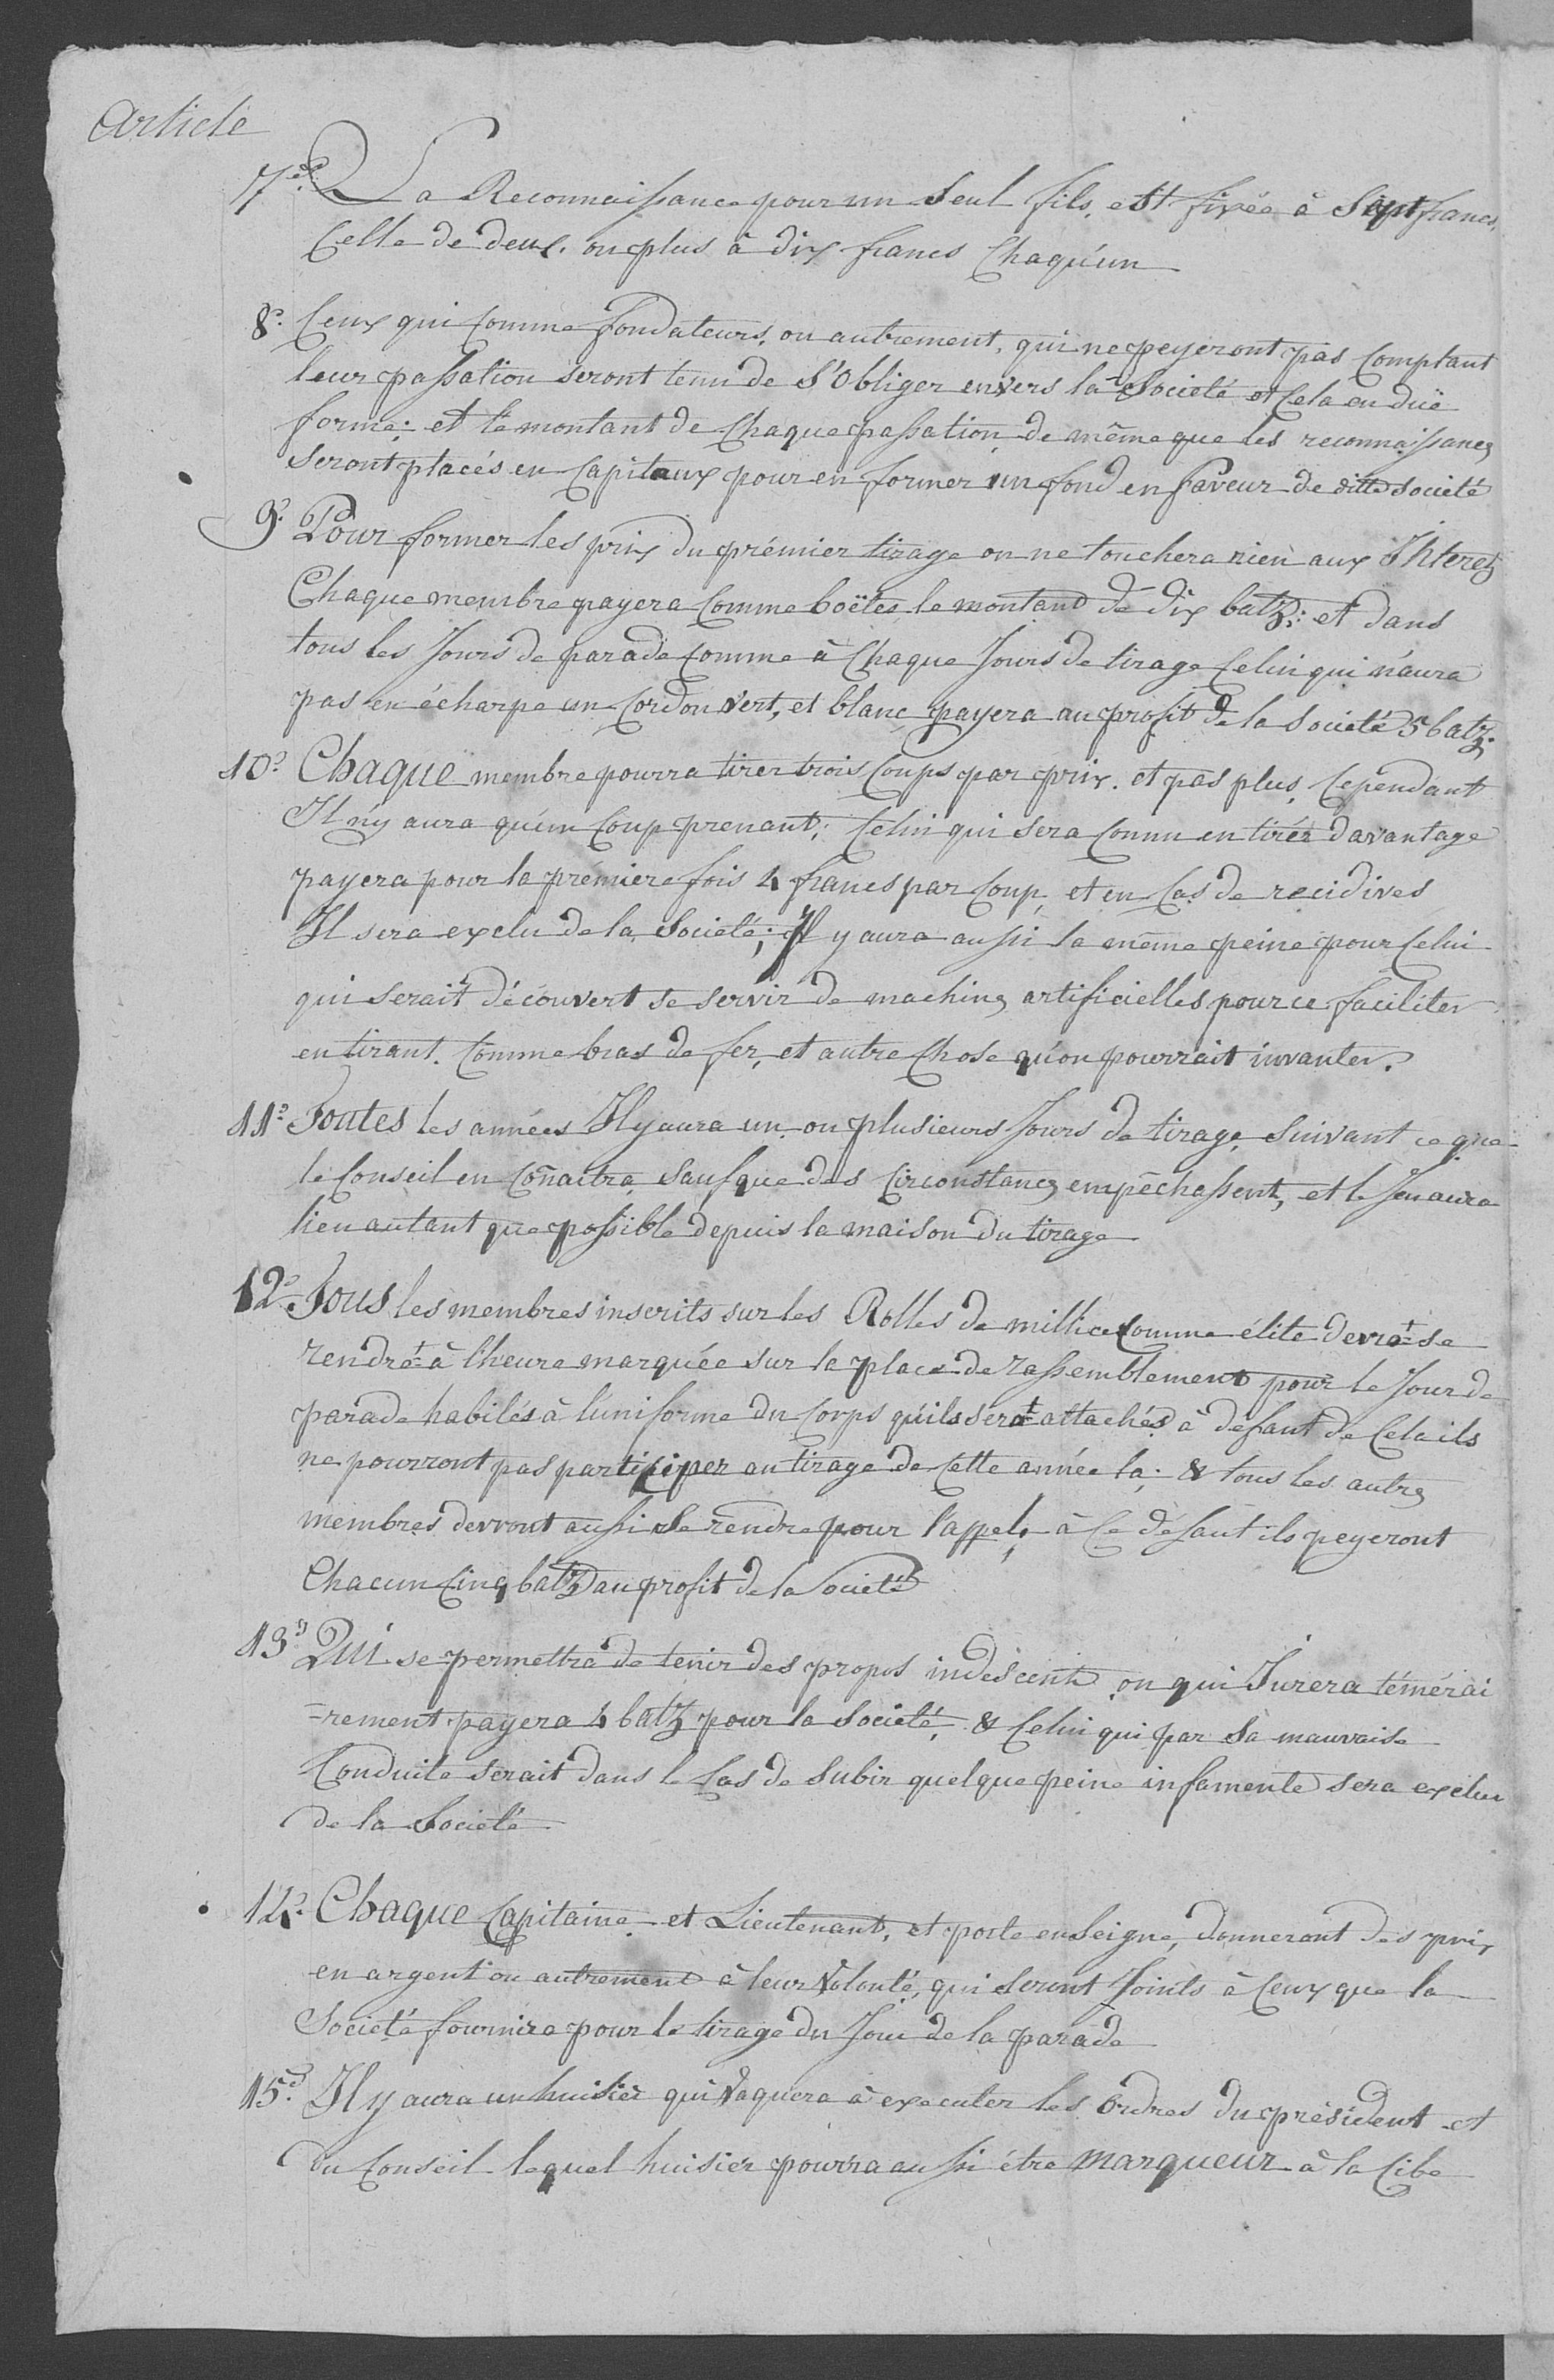 Article
7e. La Reconnaissance pour un Seul fils, est fixée à Sept francs,
Celle de deux, ou plus à dix francs Chaqu'un
8e. Ceux qui Comme fondateurs, ou autrement, qui ne peyeront pas Comptant
leur passation seront tenu de S'Obliger envers la Societé et Cela en düe
forme; et le montant de Chaque passation de même que les reconnaissances
Seront placés en Capitaux pour en former un fond en faveur de ditte societé
9e. Pour former les prix du prémier tirage on ne touchera rien aux Interets
Chaque membre payera Comme boëtes, le montand de dix batz; et dans
tous les Jours de parade Comme à Chaque Jours de tirage Celui qui n'aura
pas en écharpe un Cordon vert, et blanc payera au profit de la Societé 5 batz.
10e. Chaque membre pourra tirer trois Coups par prix. et pas plus, Cependant
Il n'y aura qu'un Coup prenant; Celui qui sera Connu en tirer davantage
payera pour la prémiere fois 4 francs par Coup, et en Cas de recidives
Il sera exclu de la Societé; Il y aura aussi la même peine pour Celui
qui serait découvert se servir de machines artificielles pour ce faciliter
en tirant. Comme bras de fer, et autre Chose qu'on pourrait invanter.
11e. Toutes les années Il y aura un, ou plusieurs Jours de tirage, Suivant ce que
le Conseil en Coñaitra, Sauf que des Circonstances empêchassent, et le Jeu aura
lieu autant que possible depuis la maison du tirage
12e. Tous les membres inscrits sur les Rolles de millice Comme élite devrot se
rendre à l'heure marquée sur la place de rassemblement pour le Jour de
parade habilés à l'uniforme du Corps qu'ils serot attachés à défaut de Cela ils
ne pourront pas participer au tirage de Cette année la; & tous les autres
membres devront aussi Se rendre pour l'appel, à Ce défaut ils peyeront
Chacun Cinq batz au profit de la Societé
13e. Qui se permettra de tenir des propos indescents, ou qui Jurera témérai
=rement payera 4 batz pour la Societé, & Celui qui par Sa mauvaise
Conduite serait dans le Cas de Subir quelque peine infamente sera exclu
de la Societé
14e. Chaque Capitaine et Lieutenant, et porte enseigne, donneront des prix
en argent ou autrement à leur volonté, qui Seront Joints à Ceux que la
Societé fournira pour le tirage du Jour de la parade
15e. Il y aura un huisier qui Vaquera à executer les Ordres du président et
du Conseil lequel huisier pourra aussi être marqueur à la Cibe